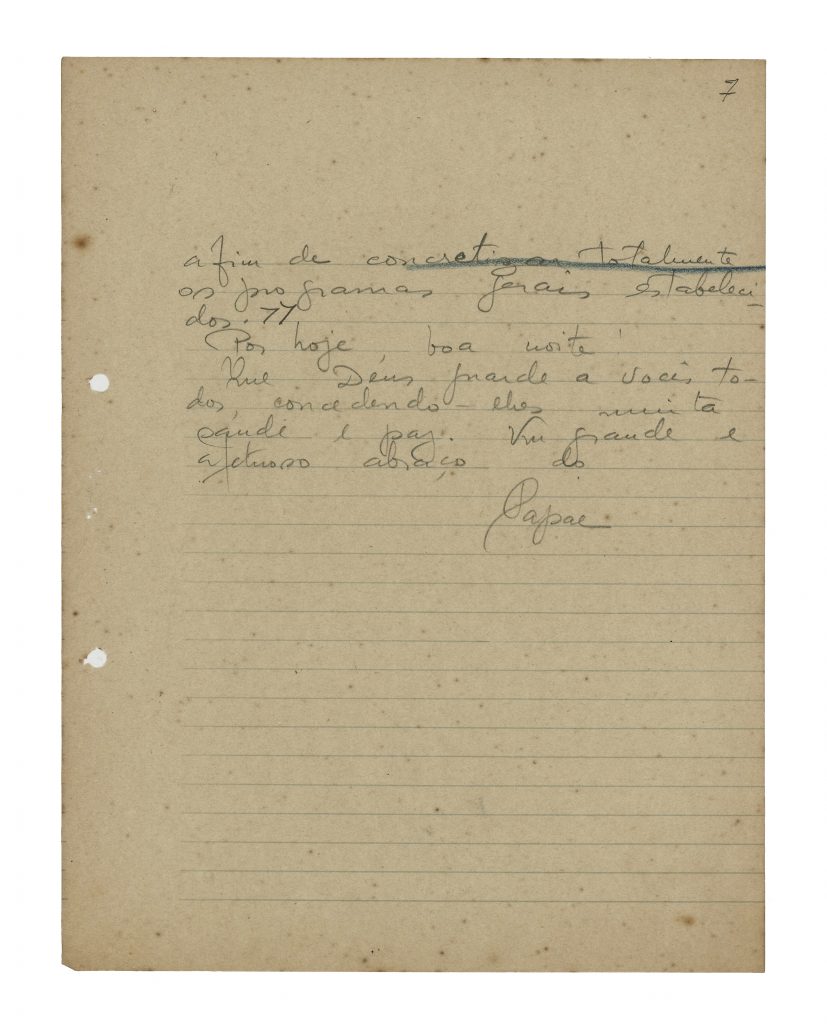 7
afim de concretisar totalmente
os programas gerais estabeleci-
dos. 77
Por hoje boa noite!
Que Deus guarde a vocês to-
dos, concedendo-lhes muita
saude e paz. Um grande e
afetuoso abraço do
Papae